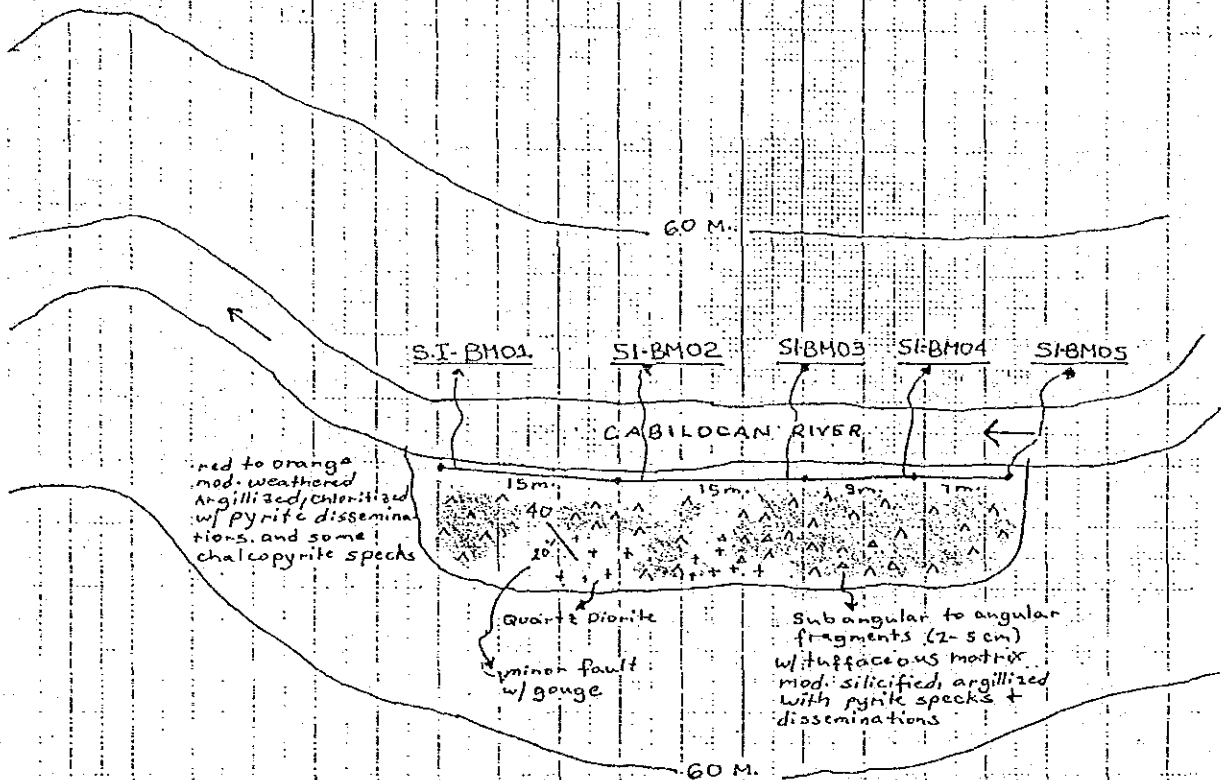 60 M.
S.I-BM01 SI-BM02 SI-BM03 SI-BM04 SI-BM05
CABILOCAN RIVER
15m. 15m. 9m. 7m.
red to orange
mod. weathered
Argillized, chloritized
w/ pyrite dissemina
tions. and some
chalcopyrite specks
40
20°
Quartz Diorite
minor fault
w/ gouge
Subangular to angular
fragments (2-5 cm)
w/ tuffaceous matrix
mod. silicified, argillized
with pyrite specks +
disseminations
60 M.